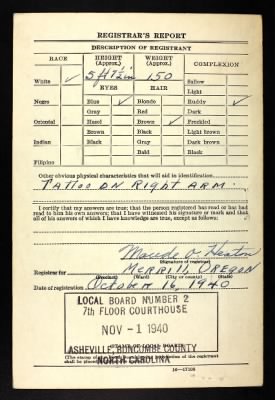 REGISTRAR'S REPORT
DESCRIPTION OF REGISTRANT
RACE HEIGHT (Approx.) WEIGHT (Approx.) COMPLEXION
White ✓ 5 ft 7½ in 150 Sallow
EYES HAIR Light
Negro Blue ✓ Blonde Ruddy ✓
Gray Red Dark
Oriental Hazel Brown ✓ Freckled
Brown Black Light brown
Indian Black Gray Dark brown
Bald Black
Filipino
Other obvious physical characteristics that will aid in identification
Tattoo on Right arm.
I certify that my answers are true; that the person registered has read or has had
read to him his own answers; that I have witnessed his signature or mark and that
all of his answers of which I have knowledge are true, except as follows:
Maude V. Heaton
(Signature of registrar)
Registrar for MERRILL, OREGON
(Precinct) (Ward) (City or county) (State)
Date of registration October 16, 1940
LOCAL BOARD NUMBER 2
7th FLOOR COURTHOUSE
NOV - 1 1940
ASHEVILLE, BUNCOMBE COUNTY
NORTH CAROLINA